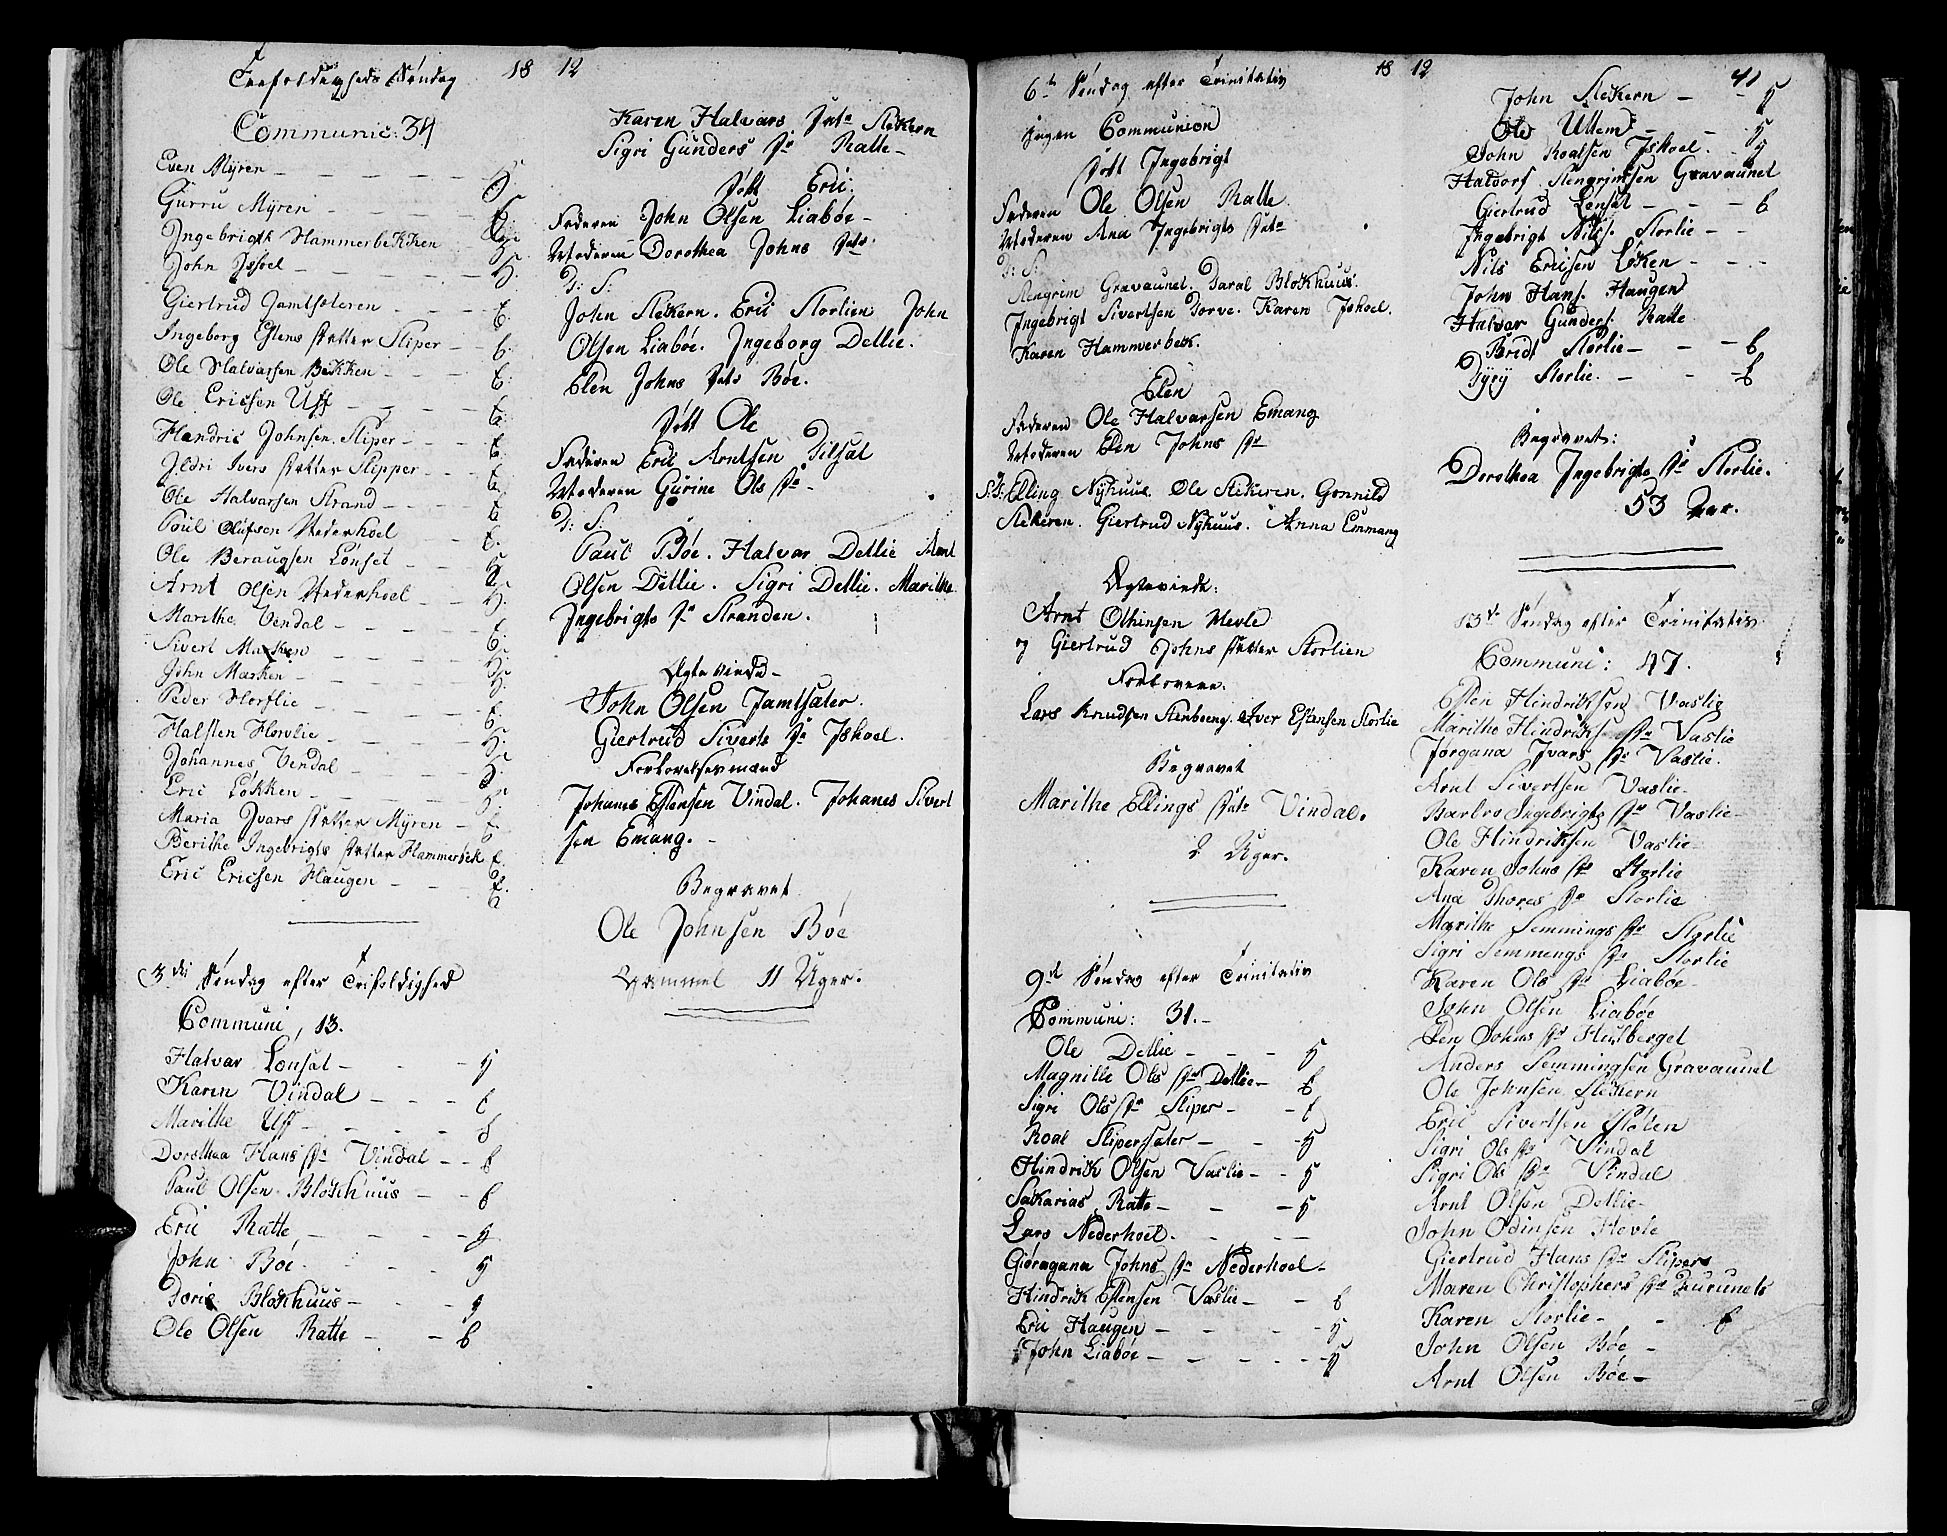 Trefoldigheds Søndag 18 12
Communic: 34
Even Myren
Gurru Myren
Ingebrigt Hammerbekken
John Jshoel
Giertrud Jamtsæteren
Ingeborg Estens datter Sliper
Ole Halvarsen Bekken
Ole Ericsen Uff
Hendric Johnsen Sliper
Jldri Ivers datter Slipper
Ole Halvarsen Strand
Poul Olufsen Nederhoel
Ole Beraugsen Lønset
Arnt Olsen Nederhoel
Marithe Vindal
Sivert Masken
John Masken
Peder Horslie
Halsten Horslie
Johannes Vindal
Eric Løkken
Maria Jvars datter Myren
Berithe Ingebrigts datter Hammerbek
Eric Ericsen Haugen
3die Søndag efter Trifoldighed
Communi, 13.
Halvar Lønset
Karen Vindal
Marithe Uff
Dorothea Hans dr Vindal
Paul Olsen Blokhuus
Eric Ratte
John Bøe
Blokhuus
Ole Olsen Ratte
Karen Halvars Datr Slekern
Sigri Gunders dr Ratte
Døbt Eric.
Faderen John Olsen Liabøe
Moderen Dorothea Johns datr
D: S:
John Slekern. Eric Storlien John
Olsen Liabøe. Ingeborg Dellie.
Elen Johns datr Bøe.
Døbt Ole
Faderen Eric Arntsen Gilsæt
Moderen Gurine Ols dr
D: S:
Paul Bøe. Halvar Dellie Arnt
Olsen Dellie. Sigri Dellie. Marithe
Ingebrigts dr Stranden.
Ægteviede
John Olsen Jamtsater.
Giertrud Siverts dr Jshoel.
Forlovelsesmænd
Johanes Estensen Vindal. Johanes Sivert
sen Emang.
Begravet
Ole Johnsen Bøe
Gammel 11 Uger.
6te Søndag efter Trinitatis 18 12
Ingen Communion
Døbt Ingebrigt
Faderen Ole Olsen Ratte
Moderen Ana Ingebrigts datr
D: S:
Stengrim Gravaunet. Blokhuus.
Ingebrigt Sivertsen Gorve. Karen Jshoel.
Karen Hammerbek.
Elen
Faderen Ole Halvarsen Emang
Moderen Elen Johns dr
Elling Nyhuus. Ole Slekeren. Gonnild
Slekeren. Giertrud Nyhuus. Anna Emmang
Ægteviede:
Arnt Othinsen Hevle
og Giertrud Johns datter Storlien
Forlovere.
Lars Knudsen Stenboeng. Iver Estensen Storlie
Begravet
Marithe Ellings datr Vindal.
2 Uger.
9de Søndag efter Trinitatis
Communi: 31.
Ole Dellie
Magnille Ols dr Dellie
Sigri Ols dr Sliper
Roal Slipersater
Hindrik Olsen Vaslie
Sakarias Ratte
Lars Nederhoel
Giøragana Johns dr Nederhoel
Hindrik Estensen Vaslie
Eric Haugen
John Liabøe
41
John Slekern
Ole Ullem
John Roalsen Jshoel
Haldorf Stengrimsen Gravaunet
Giertrud Lønset
Ingebrigt Nils. Storlie
Nils Ericsen Løken
John Hans. Haugen
Halvar Gunders. Ratte
Beridt Storlie
Storlie
Begravet:
Dorothea Ingebrigts dr Storlie.
53 Aar.
13de Søndag efter Trinitatis
Communi: 47.
Esten Hindriksen Vaslie
Marithe Hindriks dr Vaslie
Jørgana Jvars dr Vaslie.
Arnt Sivertsen Vaslie
Barbro Ingebrigts dr Vaslie
Ole Hindriksen Vaslie
Karen Johns dr Storlie
Ana Thores dr Storlie
Marithe Semmings dr Storlie
Sigri Semmengs dr Storlie
Karen Ols dr Liabøe
John Olsen Liabøe
Elen Johns dr Husberget
Anders Semmingsen Gravaunet
Ole Johnsen Slekern
Eric Sivertsen Stølen
Sigri Ols dr Vindal
Sigri Ols dr Vindal
Arnt Olsen Dellie
John Odinsen Hevle
Giertrud Hans dr Sliper
Maren Christophers dr
Karen Storlie
John Olsen Bøe
Arnt Olsen Bøe